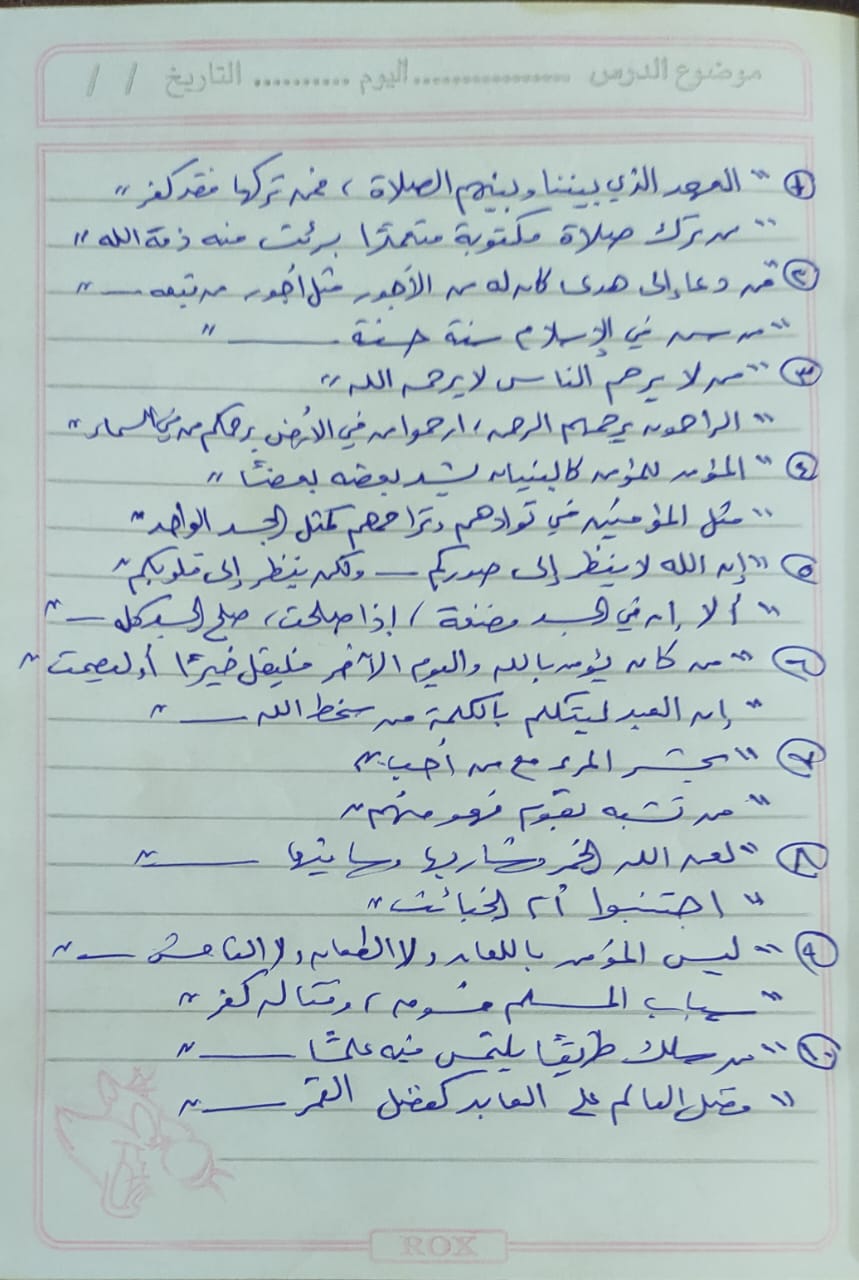 موضوع الدرس ................ اليوم .......... التاريخ / /
① "العهد الذي بيننا وبينهم الصلاة، فمن تركها فقد كفر"
"من ترك صلاة مكتوبة متعمدًا برئت منه ذمة الله"
② "من دعا إلى هدى كان له من الأجور مثل أجور من تبعه ــــ"
"من سن في الإسلام سنة حسنة ــــــــ"
③ "من لا يرحم الناس لا يرحمه الله"
"الراحمون يرحمهم الرحمن، ارحموا من في الأرض يرحمكم من في السماء"
④ "المؤمن للمؤمن كالبنيان يشد بعضه بعضًا"
"مثل المؤمنين في توادهم وتراحمهم كمثل الجسد الواحد"
⑤ "إن الله لا ينظر إلى صوركم ــــ ولكن ينظر إلى قلوبكم"
"ألا إن في الجسد مضغة، إذا صلحت، صلح الجسد كله ــــ"
⑥ "من كان يؤمن بالله واليوم الآخر فليقل خيرًا أو ليصمت"
"إن العبد ليتكلم بالكلمة من سخط الله ــــــ"
⑦ "يحشر المرء مع من أحب"
"من تشبه بقوم فهو منهم"
⑧ "لعن الله الخمر وشاربها وساقيها ــــــــ"
"اجتنبوا أم الخبائث"
⑨ "ليس المؤمن باللعان ولا الطعان ولا الفاحش ــــ"
"سباب المسلم فسوق، وقتاله كفر"
⑩ "من سلك طريقًا يلتمس فيه علمًا ــــــــ"
"فضل العالم على العابد كفضل القمر ــــــ"
ROX